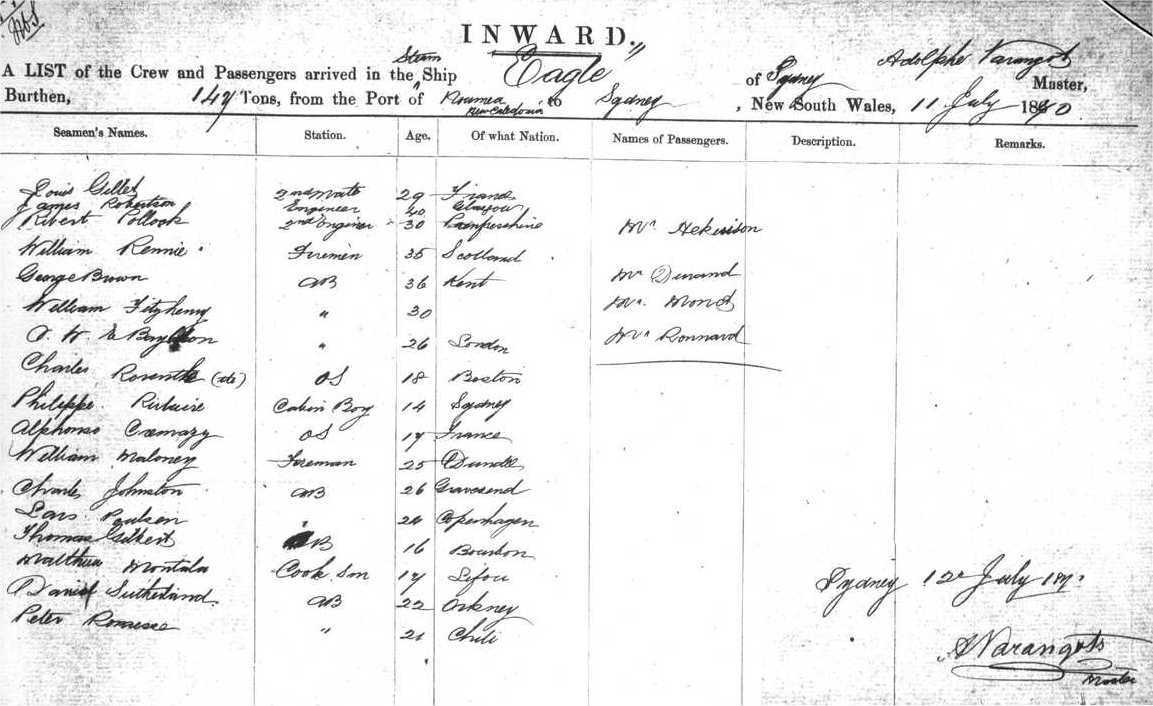 INWARD.
A LIST of the Crew and Passengers arrived in the Steam Ship Eagle of Sydney Adolphe Varangot Master,
Burthen, 147 Tons, from the Port of Noumea New Caledonia to Sydney, New South Wales, 11 July 1870
Seamen's Names. Station. Age. Of what Nation. Names of Passengers. Description. Remarks.
Louis Gillet 2nd Mate 29 France
James Robertson Engineer 40 Glasgow
Robert Pollock 2nd Engineer 30 Renfrewshire Mr
William Rennie Firemen 35 Scotland
George Brown AB 36 Kent Mr Durand
William Fitzhenry " 30 Mr.
" 26 London Mr Bonnard
Charles OS 18 Boston
Philippe Cabin Boy 14 Sydney
Alphonso OS 17 France
William Maloney Fireman 25 Dundee
Charles Johnston AB 26 Gravesend
Lars Poulsen 24 Copenhagen
Thomas Gilbert AB 16 Bourbon
Montala Cook Son 17 Lifou
Daniel Sutherland AB 22 Orkney
Peter " 21 Chili
Sydney 12 July 187
A Varangot
Master